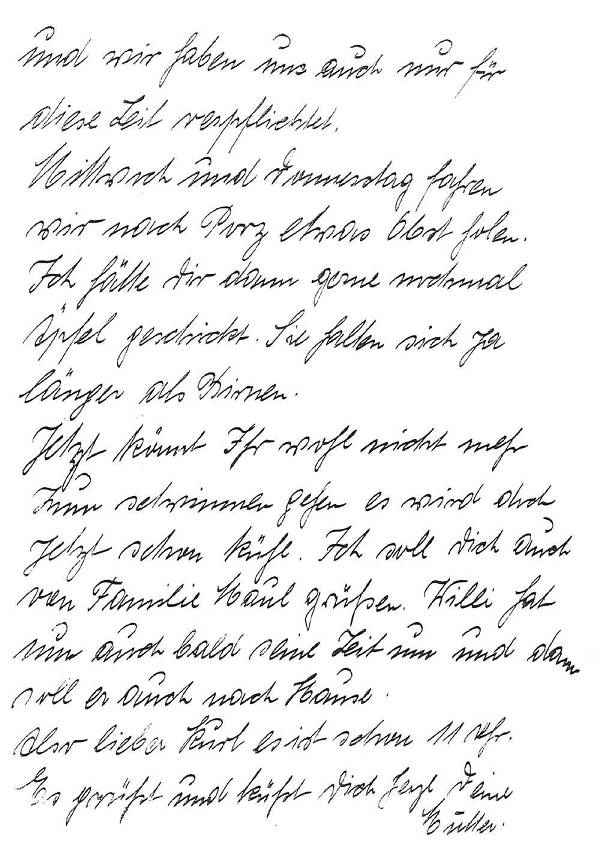 und wir haben uns auch nur für
diese Zeit verpflichtet.
Mittwoch und Donnesdag fahren
wir nach Porz etwas Obst holen.
Ich hätte dir dann gerne nochmal
Äpfel geschickt. Sie halten sich ja
länger als Birnen.
Jetzt könnt Ihr wohl nicht mehr
zum schwimmen gehen es wird doch
jetzt schon kühl. Ich soll dich auch
von Familie Maul grüßen. Willi hat
nun auch bald seine Zeit um und dann
soll er auch nach Hause.
Also lieber Kurt es ist schon 11 Uhr.
Es grüßt und küßt Dich herzl Deine
Mutter.